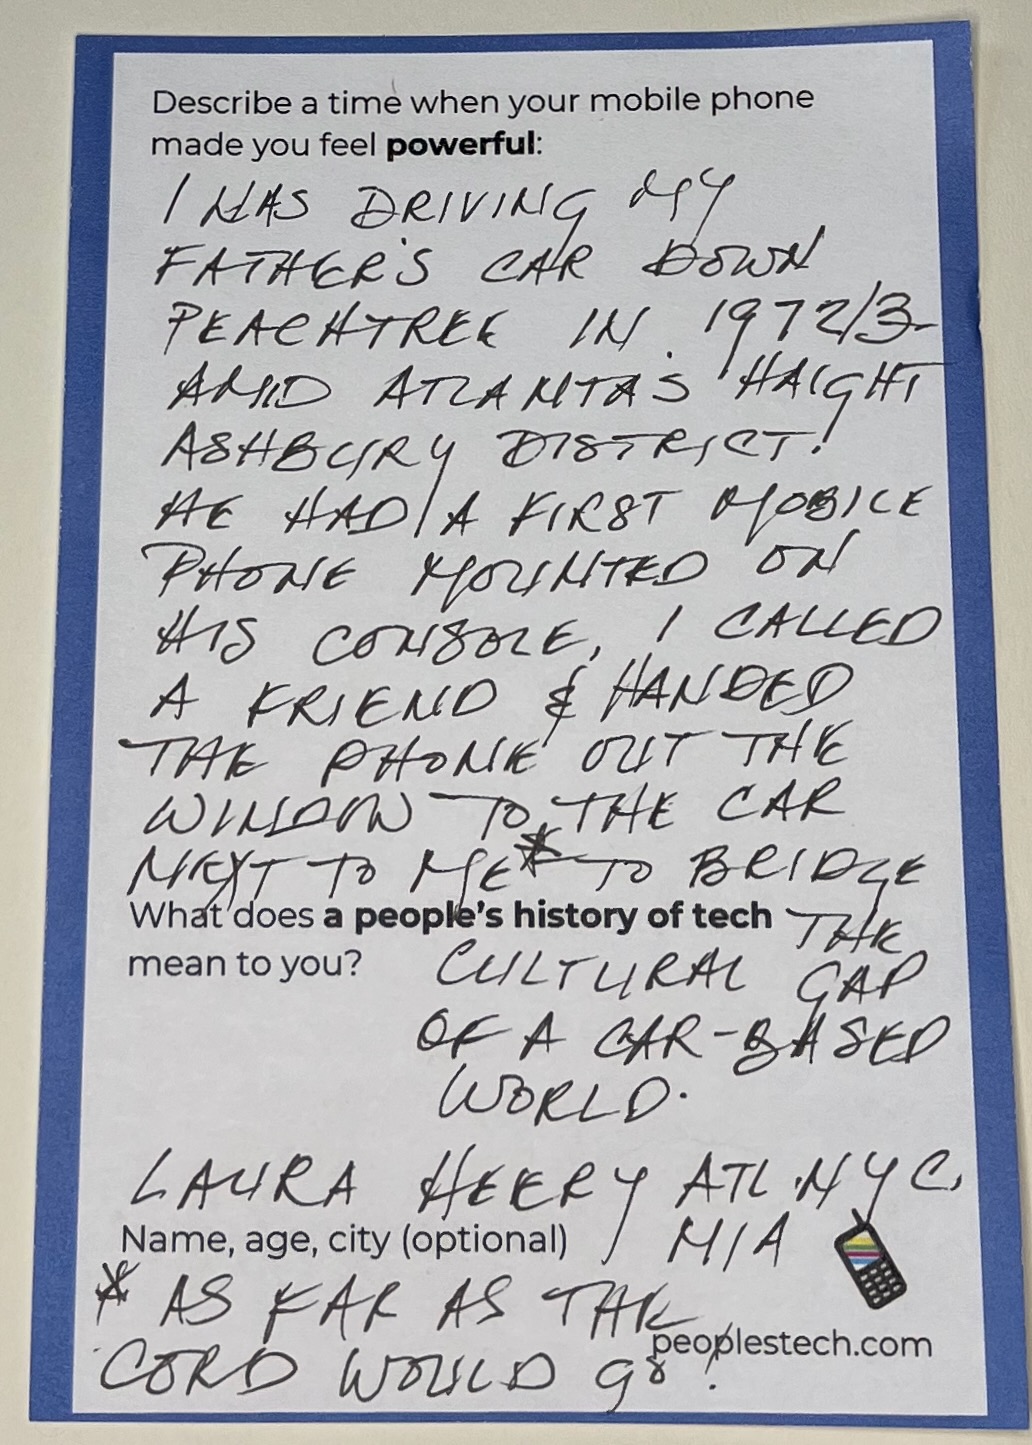 Describe a time when your mobile phone
made you feel powerful:
I WAS DRIVING MY
FATHER'S CAR DOWN
PEACHTREE IN 1972/3
AMID ATLANTA'S HAIGHT
ASHBURY DISTRICT!
HE HAD A FIRST MOBILE
PHONE MOUNTED ON
HIS CONSOLE, I CALLED
A FRIEND & HANDED
THE PHONE OUT THE
WINDOW TO THE CAR
NEXT TO ME* TO BRIDGE
What does a people's history of tech THE
mean to you? CULTURAL GAP
OF A CAR-BASED
WORLD.
LAURA HEERY ATL. NYC,
Name, age, city (optional) MIA
* AS FAR AS THE
peoplestech.com
CORD WOULD go!